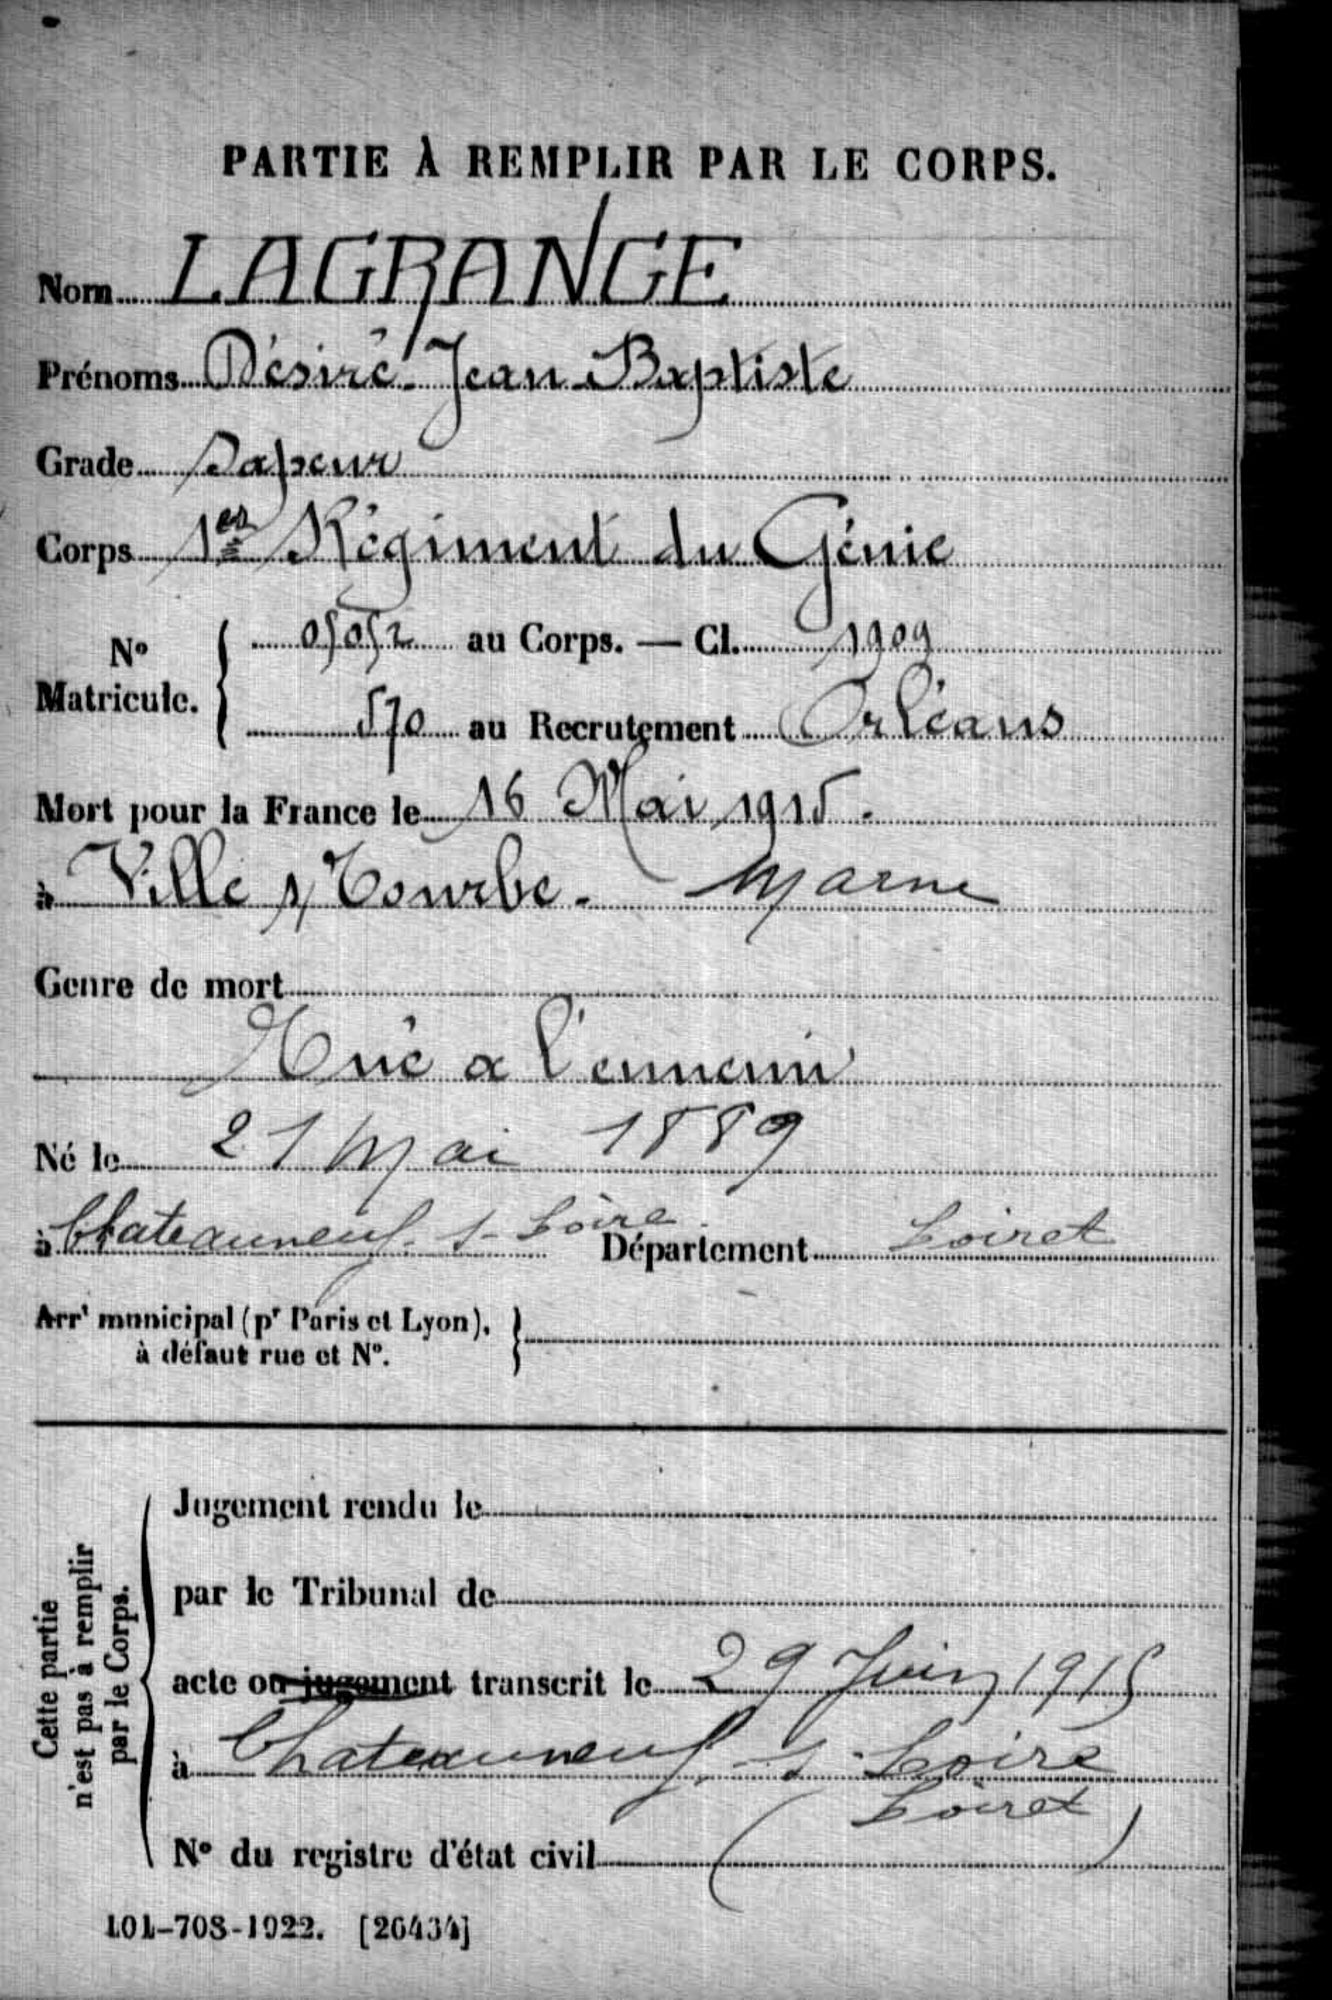 PARTIE À REMPLIR PAR LE CORPS.
Nom LAGRANGE
Prénoms Désiré Jean Baptiste
Grade Sapeur
Corps 1er Régiment du Génie
No Matricule. { 05052 au Corps. — Cl. 1909
570 au Recrutement Orléans
Mort pour la France le 16 Mai 1915.
à Ville s/ Tourbe. Marne
Genre de mort
Tué a l'ennemi
Né le 21 Mai 1889
à Chateauneuf. s- Loire. Département Loiret
Arrt municipal (pr Paris et Lyon), }
à défaut rue et No.
Cette partie
n'est pas à remplir
par le Corps.
Jugement rendu le
par le Tribunal de
acte ou jugement transcrit le 29 Juin 1915
à Chateauneuf. - s- Loire
( Loiret )
No du registre d'état civil
101-708-1922. [26434]